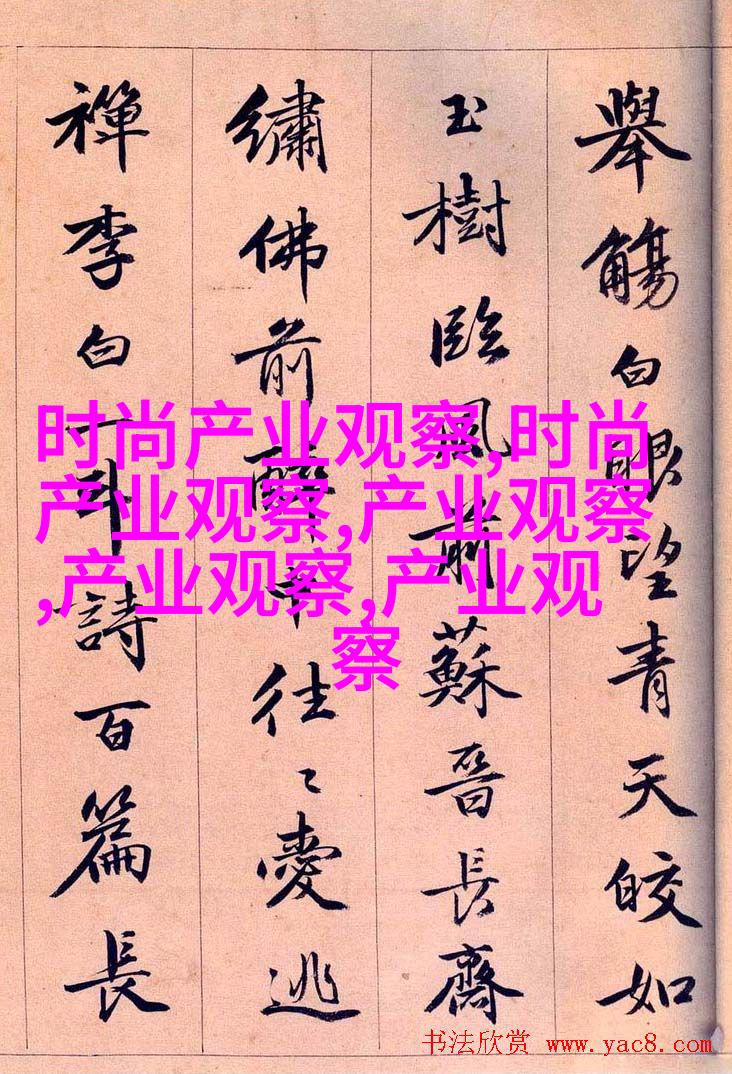 舉觴白眼望青天皎如
玉樹臨風前蘇晉長齋
繡佛前醉中往々愛逃
禪李白一斗詩百篇長
时尚产业观察,时尚
产业观察,产业观察
,产业观察,产业观
察
书法欣赏 www.yac8.com